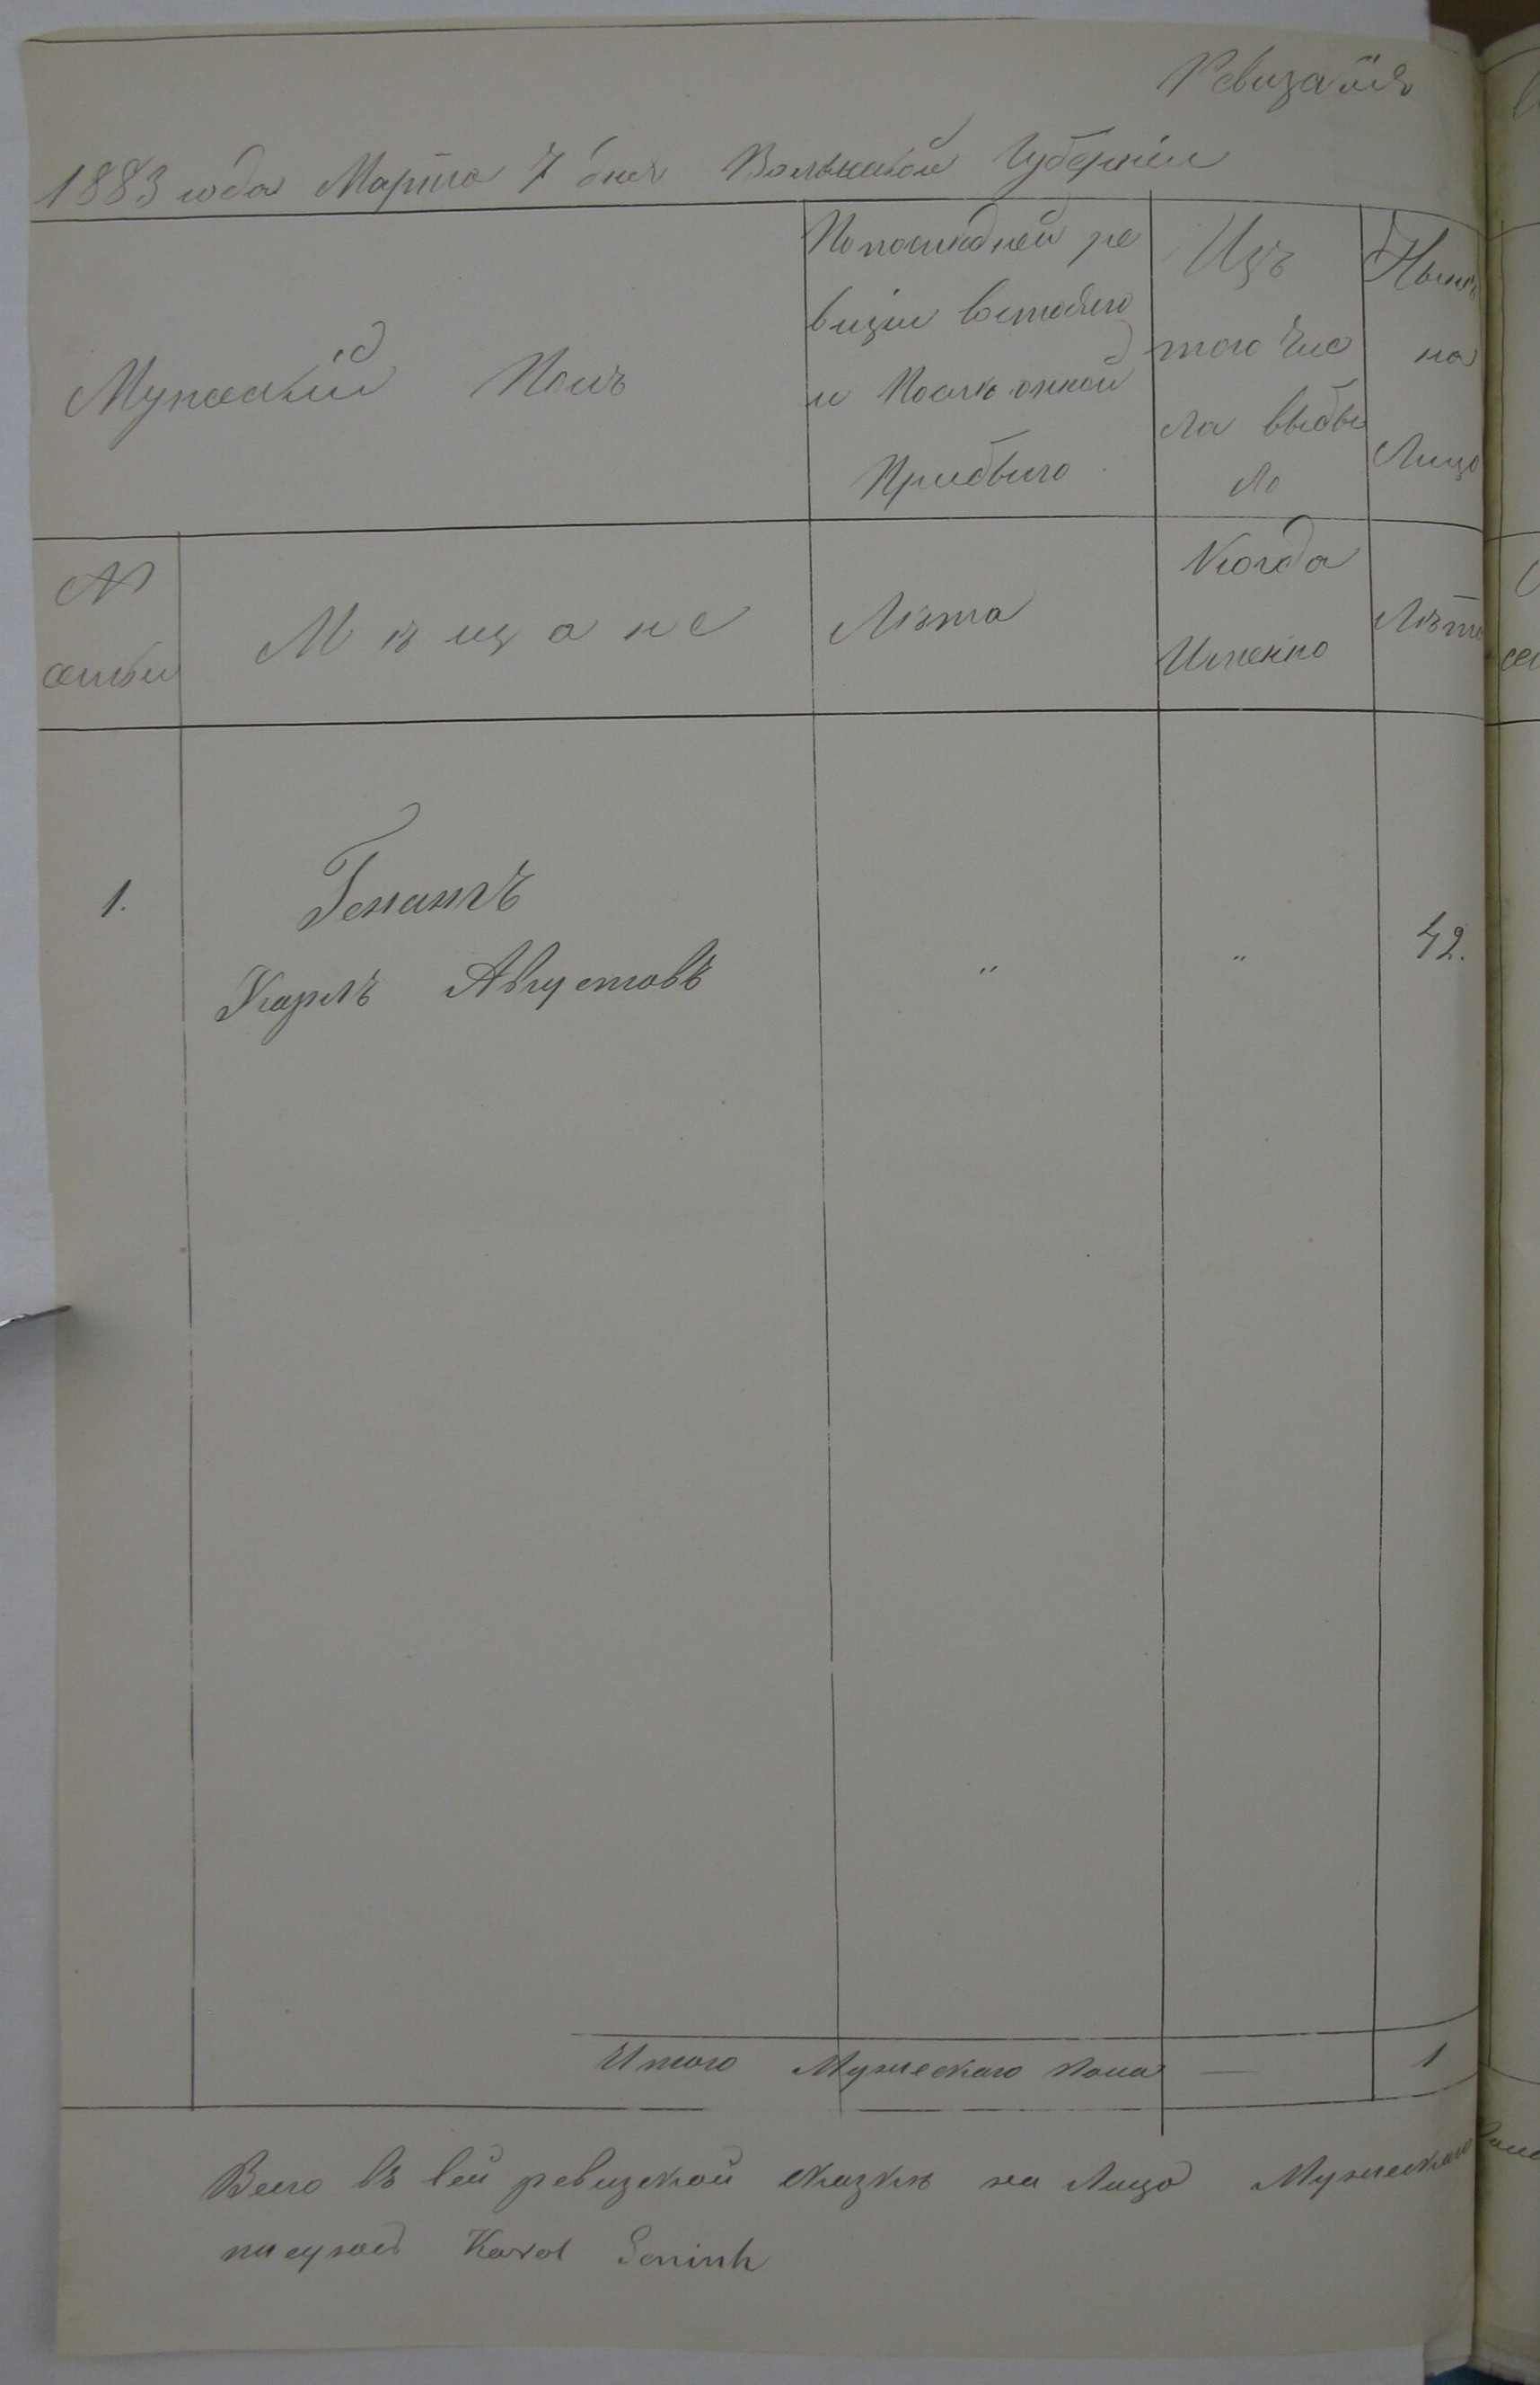 Ревизская
1883 года Марта 7 дня Волынской Губернiи
Мужескiй Полъ
По последней ре
визiи состояло
и После оной
Прибыло
Изъ
того Чис
ла выбы
ло
Нынѣ
на
Лицо
№
семьи
Мѣщане
Лѣта
Когда
Именно
Лѣта
1.
Карлъ Августовъ
"
"
42.
Итого Мужескаго Пола — 1
Всего въ сей ревизской сказкѣ на Лицо Мужескаго
Karol